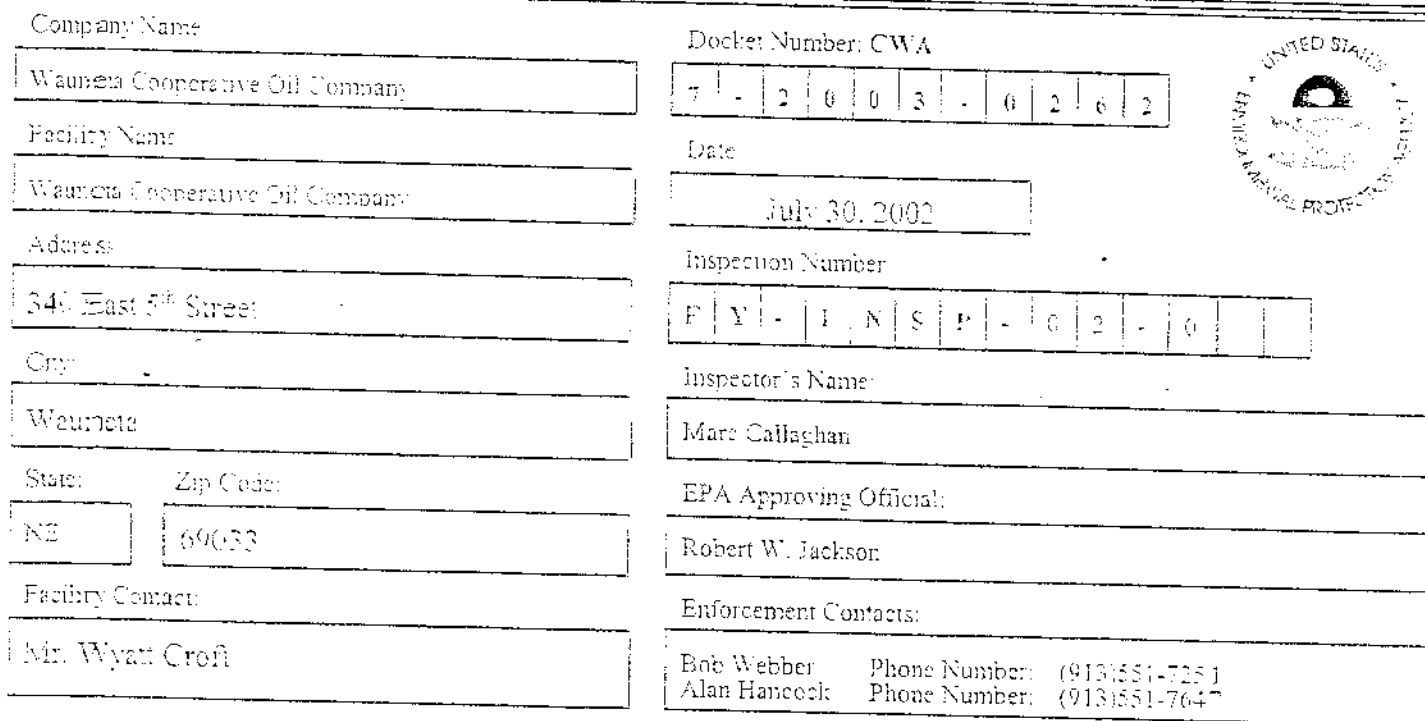 Company Name
Wauneta Cooperative Oil Company
Facility Name
Wauneta Cooperative Oil Company
Address
East 5th Street
City:
Wauneta
State: Zip Code:
NE 69033
Facility Contact:
Mr. Wyatt Croft
Docket Number: CWA
7 - 2 0 0 3 - 0 2 6 2
Date
July 30, 2002
Inspection Number
F Y - I N S P - 0 2 - 0
Inspector's Name:
Marc Callaghan
EPA Approving Official:
Robert W. Jackson
Enforcement Contacts:
Bob Webber Phone Number: (913)551-7251
Alan Hancock Phone Number: (913)551-7647
UNITED STATES
ENVIRONMENTAL PROTECTION AGENCY